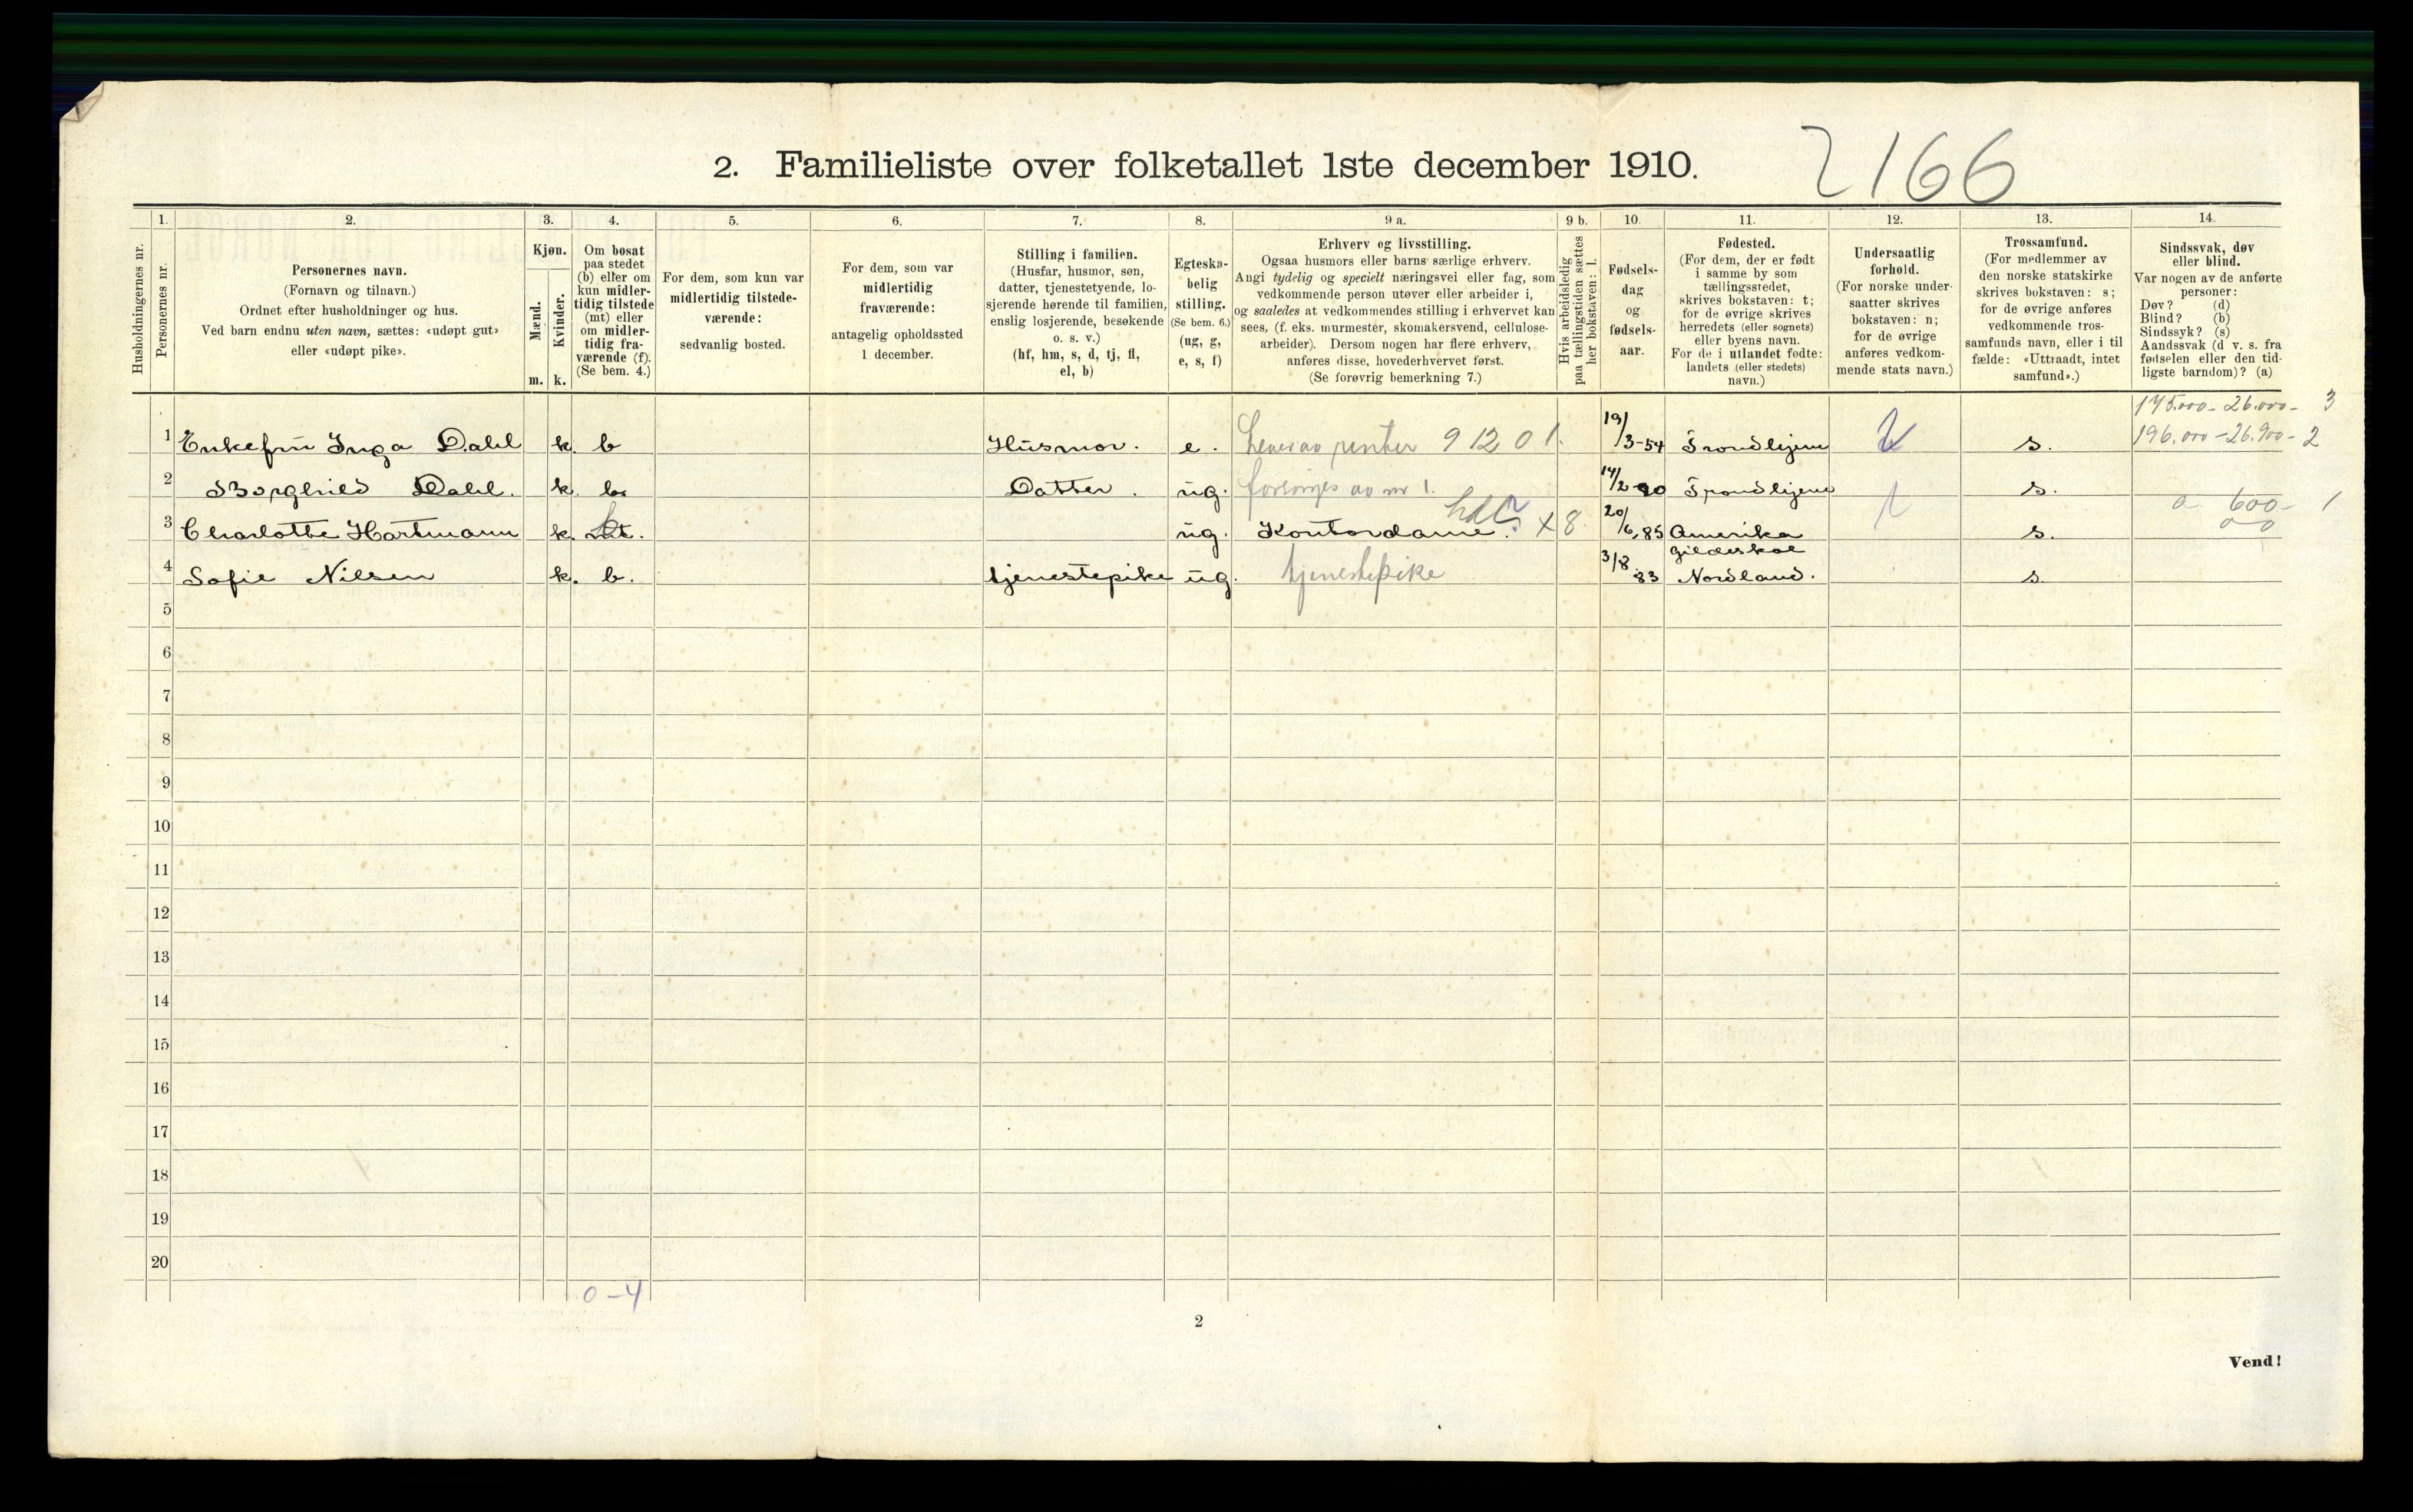 2. Familieliste over folketallet 1ste december 1910.
2166
Husholdningernes nr.
1.
Personernes nr.
2.
Personernes navn.
(Fornavn og tilnavn.)
Ordnet efter husholdninger og hus.
Ved barn endnu uten navn, sættes: «udøpt gut»
eller «udøpt pike».
3.
Kjøn.
Mænd.
Kvinder.
m. k.
4.
Om bosat
paa stedet
(b) eller om
kun midler-
tidig tilstede
(mt) eller
om midler-
tidig fra-
værende (f).
(Se bem. 4.)
5.
For dem, som kun var
midlertidig tilstede-
værende:
sedvanlig bosted.
6.
For dem, som var
midlertidig
fraværende:
antagelig opholdssted
1 december.
7.
Stilling i familien.
(Husfar, husmor, søn,
datter, tjenestetyende, lo-
sjerende hørende til familien,
enslig losjerende, besøkende
o. s. v.)
(hf, hm, s, d, tj, fl,
el, b)
8.
Egteska-
belig
stilling.
(Se bem. 6.)
(ug, g,
e, s, f)
9 a.
Erhverv og livsstilling.
Ogsaa husmors eller barns særlige erhverv.
Angi tydelig og specielt næringsvei eller fag, som
vedkommende person utøver eller arbeider i,
og saaledes at vedkommendes stilling i erhvervet kan
sees, (f. eks. murmester, skomakersvend, cellulose-
arbeider). Dersom nogen har flere erhverv,
anføres disse, hovederhvervet først.
(Se forøvrig bemerkning 7.)
9 b.
Hvis arbeidsledig
paa tællingstiden sættes
her bokstaven: l.
10.
Fødsels-
dag
og
fødsels-
aar.
11.
Fødested.
(For dem, der er født
i samme by som
tællingsstedet,
skrives bokstaven: t;
for de øvrige skrives
herredets (eller sognets)
eller byens navn.
For de i utlandet fødte:
landets (eller stedets)
navn.)
12.
Undersaatlig
forhold.
(For norske under-
saatter skrives
bokstaven: n;
for de øvrige
anføres vedkom-
mende stats navn.)
13.
Trossamfund.
(For medlemmer av
den norske statskirke
skrives bokstaven: s;
for de øvrige anføres
vedkommende tros-
samfunds navn, eller i til
fælde: «Uttraadt, intet
samfund».)
14.
Sindssvak, døv
eller blind.
Var nogen av de anførte
personer:
Døv? (d)
Blind? (b)
Sindssyk? (s)
Aandssvak (d v. s. fra
fødselen eller den tid-
ligste barndom)? (a)
175.000 - 26.000 - 3
1 Enkefru Inga Dahl k. b Husmor. e. Lever av renter 9 12 0 1. 19/3-54 Trondhjem s. 196.000 - 26.900 - 2
2 Borghild Dahl. k. b. Datter. ug. forsørges av nr 1. 14/2 90 Trondhjem s.
3 Charlotte Hartmann k. mt. b ug. Kontordame. x 8 20/6.85 Amerika s. a 600 - 1
4 Sofie Nilsen k. b. tjenestepike ug. tjenestepike 3/8 83 Gildeskol Nordland. s.
5
6
7
8
9
10
11
12
13
14
15
16
17
18
19
20
0-4
2
Vend!